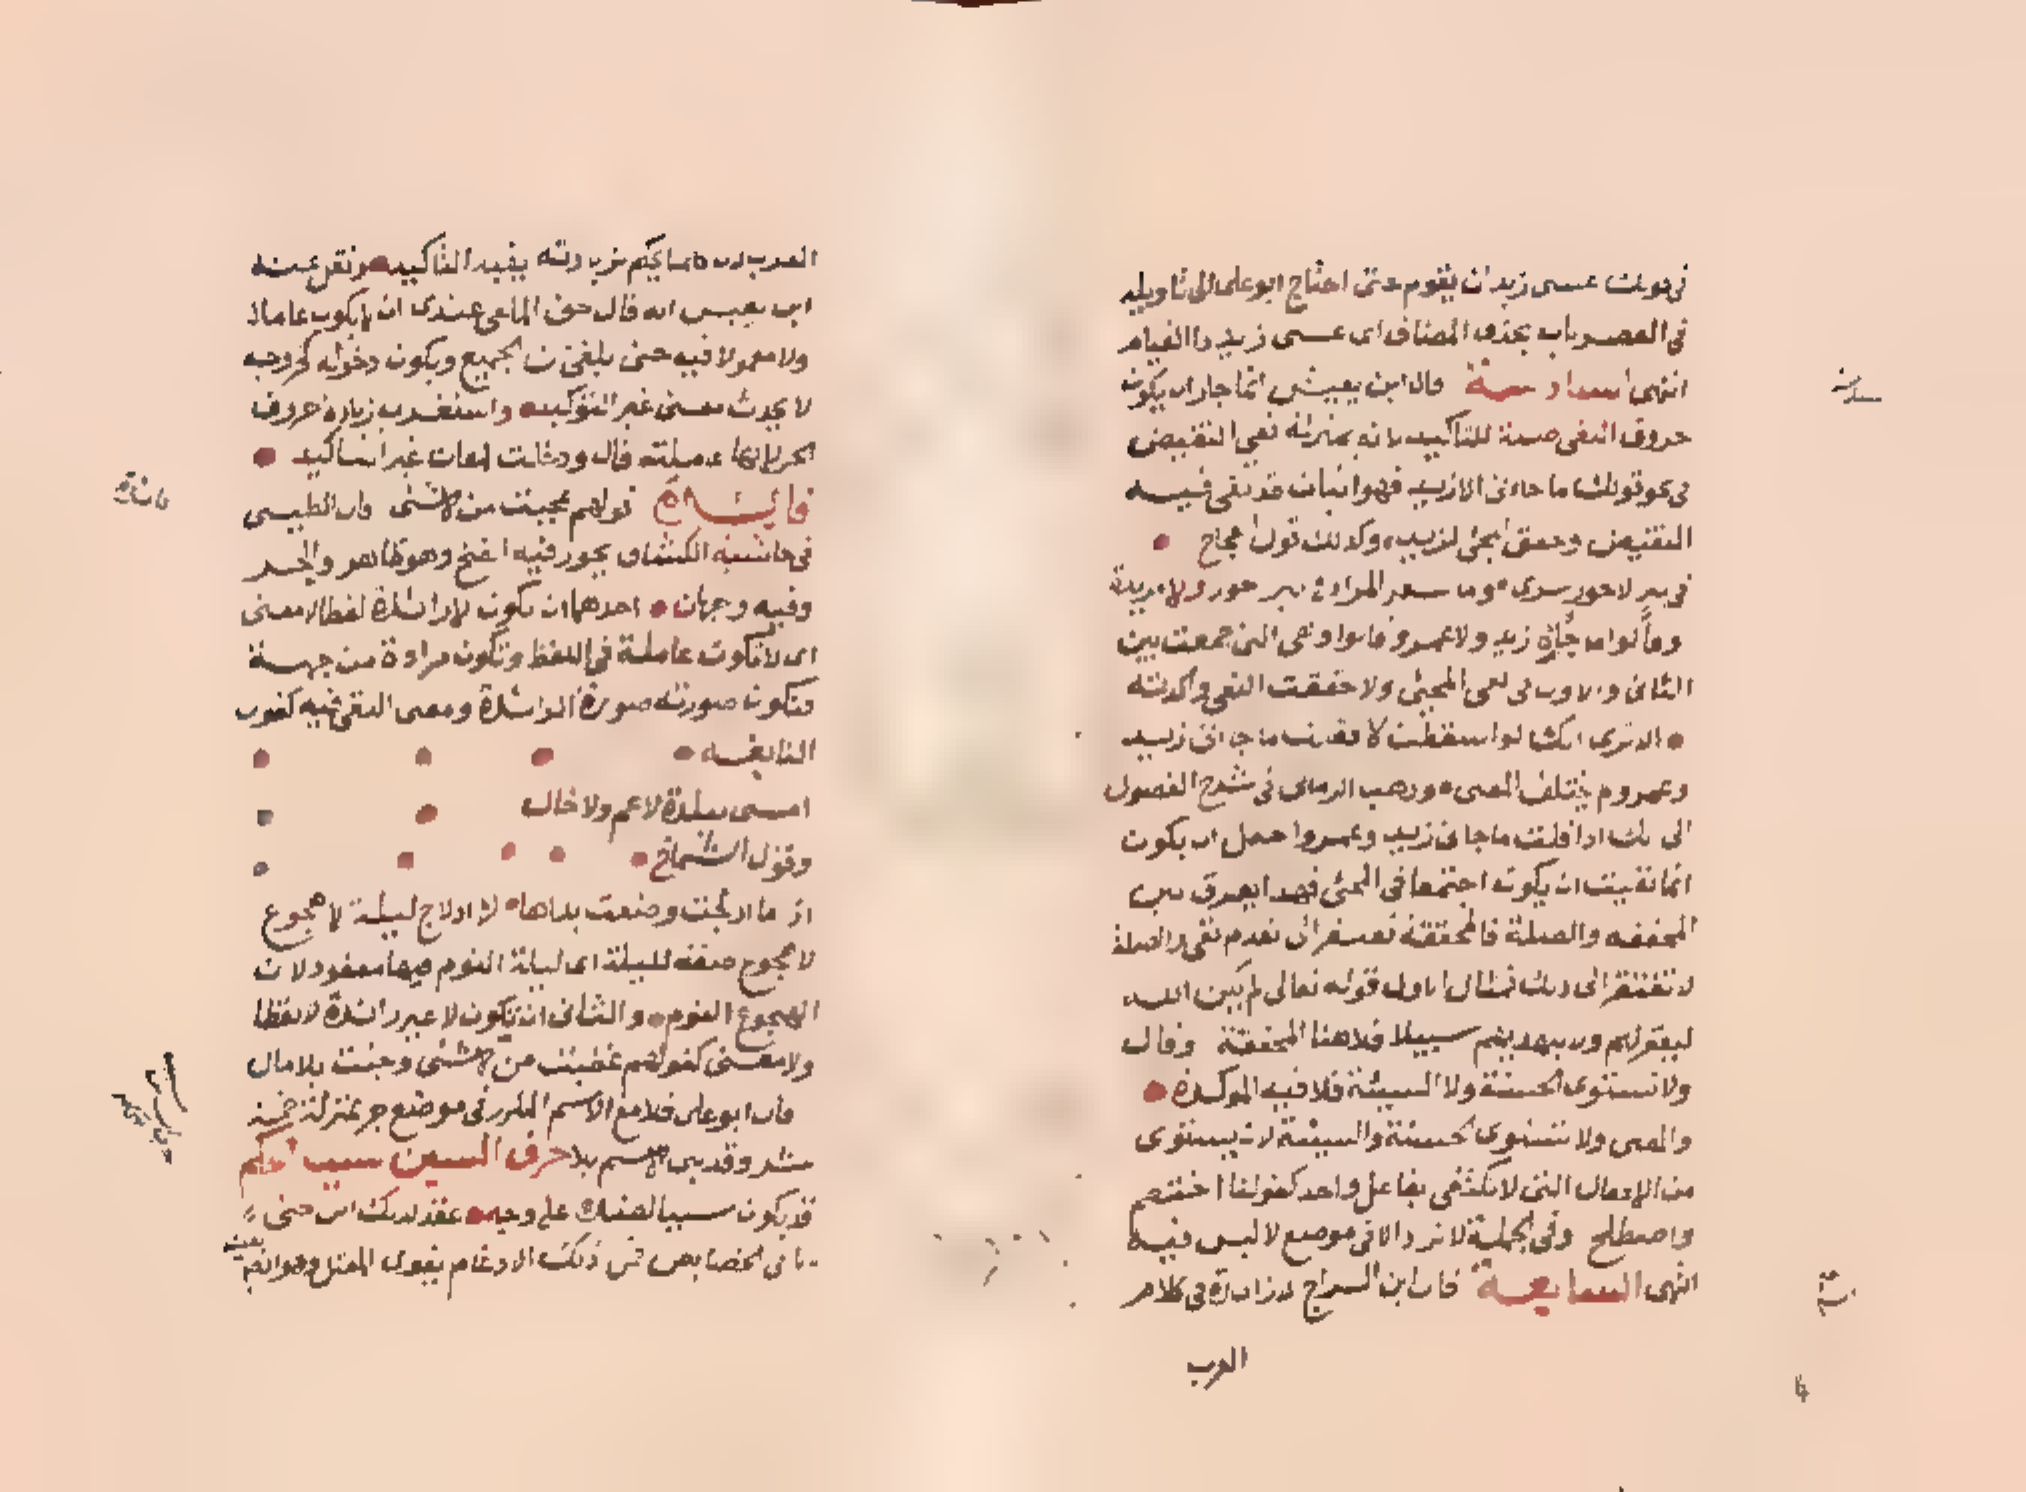 في قولك عسى زيد ان يقوم حتى احتاج ابو على الى تاويله
في القصريات بحذف المضاف اى عسى زيد ذا القيام
انتهى السادسة قال ابن يعيش انما جاز ان يكون
حروف النفي صلة للتاكيد لانه بمنزلة نفي النقيض
في نحو قولك ما جاءنى الا زيد فهو اثبات قد نفى فيه
النقيض وحقق المجئ لزيد وكذلك قول العجاج
في بير لا حور سرى وما شعر المراد في بير حور ولا مزيدة
وقالوا ما جاءنى زيد ولا عمرو قالوا وهى التى جمعت بين
الثانى والاول في نفى المجئ ولا حققت النفى واكدته
الا ترى انك لو اسقطت لا فقلت ما جانى زيد
وعمرو لم يختلف المعنى وذهب الرمانى في شرح الفصول
الى انك اذا قلت ما جانى زيد وعمرو احتمل ان يكون
انما نفيت ان يكونا اجتمعا في المجئ فهذا يفرق بين
المحققه والصلة فالمحققة تفتقر الى تقدم نفى والصلة
لا تفتقر الى ذلك فمثال الاول قوله تعالى لم يكن الله
ليغفر لهم ولا ليهديهم سبيلا فلا هنا المحققة وقال
ولا تستوى الحسنة ولا السيئة فلا فيه الموكدة
والمعنى ولا تستوى الحسنة والسيئة لان يستوى
من الافعال التى لا تكتفى بفاعل واحد كقولنا اختصم
واصطلح وفى الجملة لا تزاد الا فى موضع لا لبس فيه
انتهى السابعة قال ابن السراج لا زيادة في كلام
العرب
العرب لان كلما يحكم بزيادته يفيد التاكيد ونقل عنه
ابن يعيش انه قال حق الملغى عندى ان لا يكون عاملا
ولا معمولا فيه حتى يلغى من الجميع ويكون دخوله كخروجه
لا يحدث معنى غير التوكيد واستغرب زيادة حروف
الجر لانها عاملة قال ودخلت لمعان غير التاكيد
فائدة قولهم عجبت من لا شئ قال الطيبى
في حاشية الكشاف يجوز فيه الفتح وهو ظاهر والجر
وفيه وجهان احدهما ان تكون لا زائدة لفظا لا معنى
اى لا تكون عاملة في اللفظ وتكون مرادة من جهة
فتكون صورته صورة الزائدة ومعنى النفى فيه كقول
النابغه
امسى ببلدة لا عم ولا خال
وقول الشماخ
اذ ما ادلجت وضعت يداها لا ادلاج ليلة لا هجوع
لا هجوع صفة لليلة اى ليلة النوم فيها مفقود لان
الهجوع النوم والثانى ان تكون لا غير زائدة لا لفظا
ولا معنى كقولهم غضبت من لا شئ وجئت بلا مال
قال ابو على فلا مع الاسم المكرر فى موضع جر بمنزلة خمسة
عشر وقد بنى الاسم بلا حرف السين سبب الحكم
قد يكون سببا لضده على وجه عقد لذلك ابن جنى
بابا فى الخصايص فمن ذلك الادغام يقوى المعتل وهو ايضا